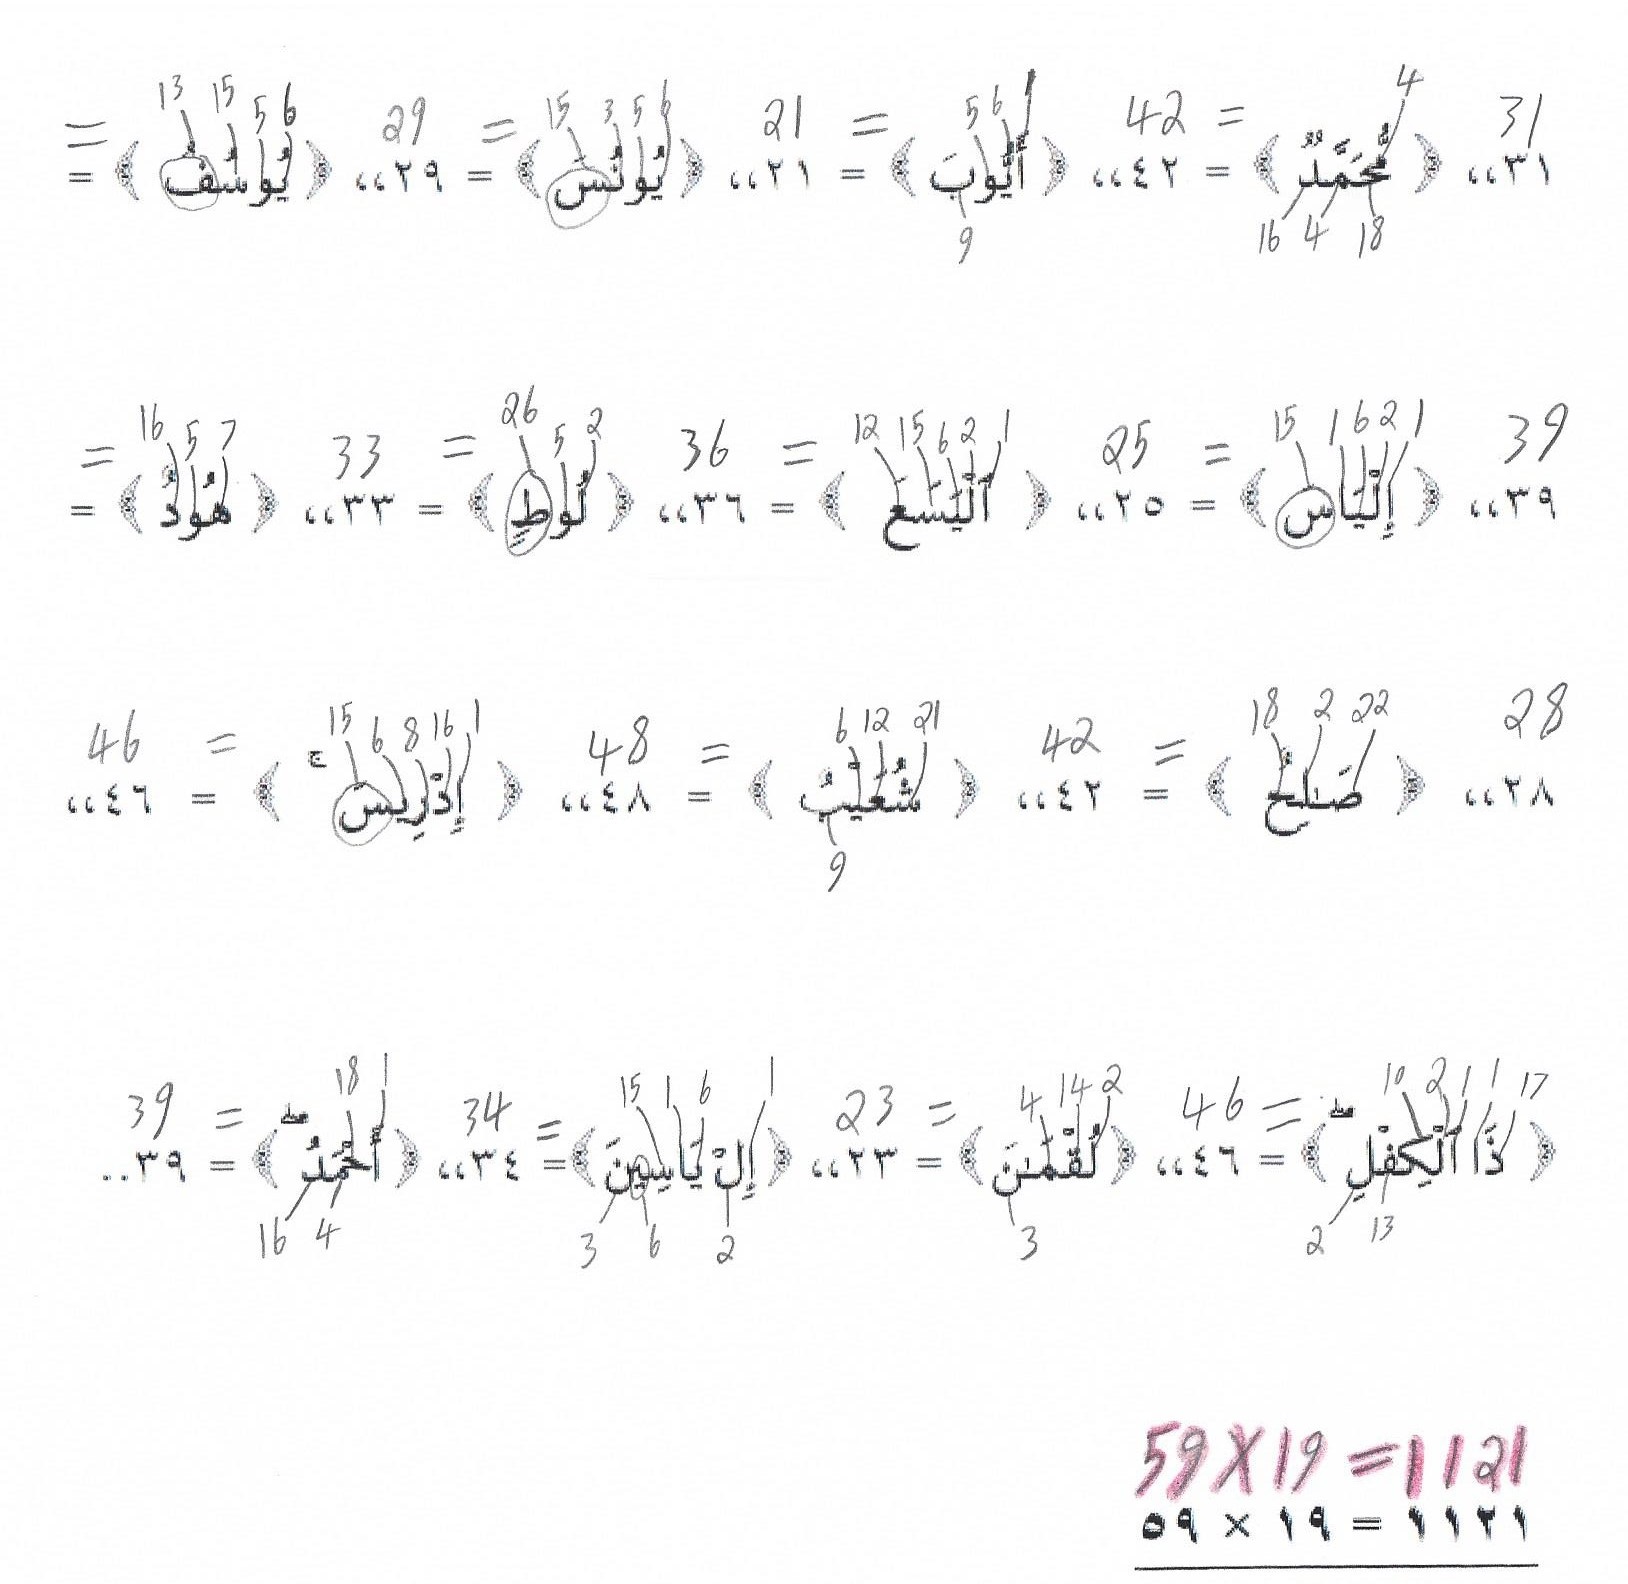 = 13 15 5 6 29 = 15 3 5 6 21 = 5 6 1 42 = 4 31
٣١،، ﴿ مُّحَمَّدٌ ﴾ = ٤٢،، ﴿ أَيُّوبَ ﴾ = ٢١،، ﴿ يُونُسَ ﴾ = ٢٩،، ﴿ يُوسُفُ ﴾ =
9 16 4 18
= 16 5 7 33 = 26 5 2 36 = 12 15 6 2 1 25 = 15 1 6 2 1 39
٣٩،، ﴿ إِلْيَاسَ ﴾ = ٢٥،، ﴿ ٱلْيَسَعَ ﴾ = ٣٦،، ﴿ لُوطٍ ﴾ = ٣٣،، ﴿ هُودٌ ﴾ =
46 = 15 6 8 16 1 48 = 6 12 21 42 = 18 2 22 28
٢٨،، ﴿ صَـٰلِحُ ﴾ = ٤٢،، ﴿ شُعَيْبٌ ﴾ = ٤٨،، ﴿ إِدْرِيسَ ۚ ﴾ = ٤٦،،
9
39 = 18 1 34 = 15 1 6 1 23 = 4 14 2 46 = 10 2 1 1 17
﴿ ذَا ٱلْكِفْلِ ۖ ﴾ = ٤٦،، ﴿ لُقْمَـٰنَ ﴾ = ٢٣،، ﴿ إِلْ يَاسِينَ ﴾ = ٣٤،، ﴿ أَحْمَدُ ۖ ﴾ = ٣٩..
16 4 3 6 2 3 2 13
59 X 19 = 1121
٥٩ × ١٩ = ١١٢١